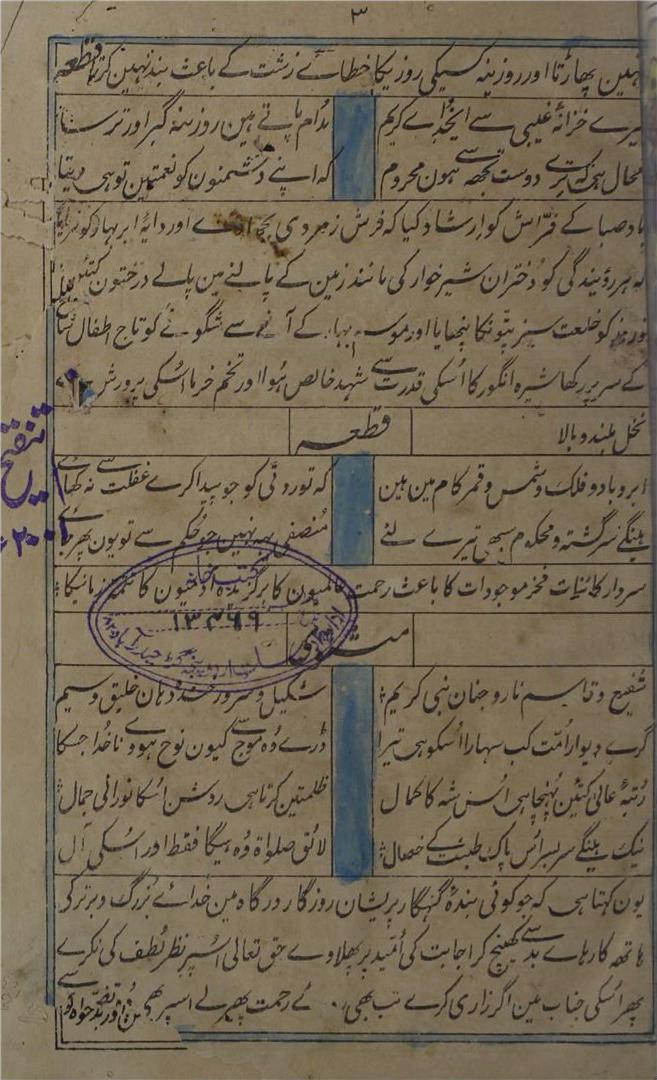 ۳
نہین پھاڑتا اور روزینہ کسیکی روزیکا خطائے زشت کے باعث بند نہین کرتا قطعہ
خزانۂ غیبی سے ایخدائے کریم
مدام پاتے ہین روزینہ گبر اور ترسا
محال ہی کہ ترے دوست تجھ سے ہون محروم
کہ اپنے دشمنون کو نعمتین تو ہی دیتا
باد صبا کے فراش کو ارشاد کیا کہ فرش زمردی بچھاوے اور دایۂ ابر بہار کو فرمایا
کہ ہر روئیندگی کو دختران شیرخوار کی مانند زمین کے پالنے مین پالے درختون کتئین
نوروز کو خلعت سبز پتونکا پنھایا اور موسم بہار کے آنے سے شگوفے کو تاج اطفال شاخ
کے سر پر رکھا شیرہ انگور کا اُسکی قدرت سے شہد خالص ہوا اور تخم خرما اُسکی پرورش سے
نخل بلند و بالا
قطعہ
ابر و باد و فلک و شمس و قمر کام مین ہین
کہ تو روٹی کو جو پیدا کرے غفلت سے نہ کھائے
ہینگے سرگشتہ و محکوم سبھی تیرے لئے
منصفی یہ نہین جو حکم سے تو یون پھر جائے
سردار کائنات فخر موجودات کا باعث رحمت عالمیون کا برگزیدہ آدمیون کا تتمہ زمانیکا
مثنوی
کتب خانہ
۱۳۴۶۹
حیدرآباد
شفیع و قاسم نار و جنان نبی کریم
شکیل و سرور شدہ دہان خلیق وسیم
گرے دیوار اُمت کب سہارا اُسکو ہی تیرا
ڈرے وہ موج سے کیون نوح ہووے ناخدا جسکا
رتبۂ عالی کتئین پہنچا ہی اُس شہ کا کمال
ظلمتین کرتا ہی روشن اُسکا نورانی جمال
نیک ہینگے سربسر اُس پاک طینت کے خصال
لائق صلواۃ وہ ہیگا فقط اور اُسکی آل
یون کہتا ہی کہ جو کوئی بندۂ گنہگار پریشان روزگار درگاہ مین خدائے بزرگ و برتر کی
ہاتھ کارہاے بد سے کھینچ کر اجابت کی اُمید پر پھیلاوے حق تعالی اُسپر نظر لطف کی نکرے
پھر اُسکی جناب مین اگر زاری کرے تب بھی رحمت پھیرلے اسپر بھی
تنقیح
۲۰۰۱ء